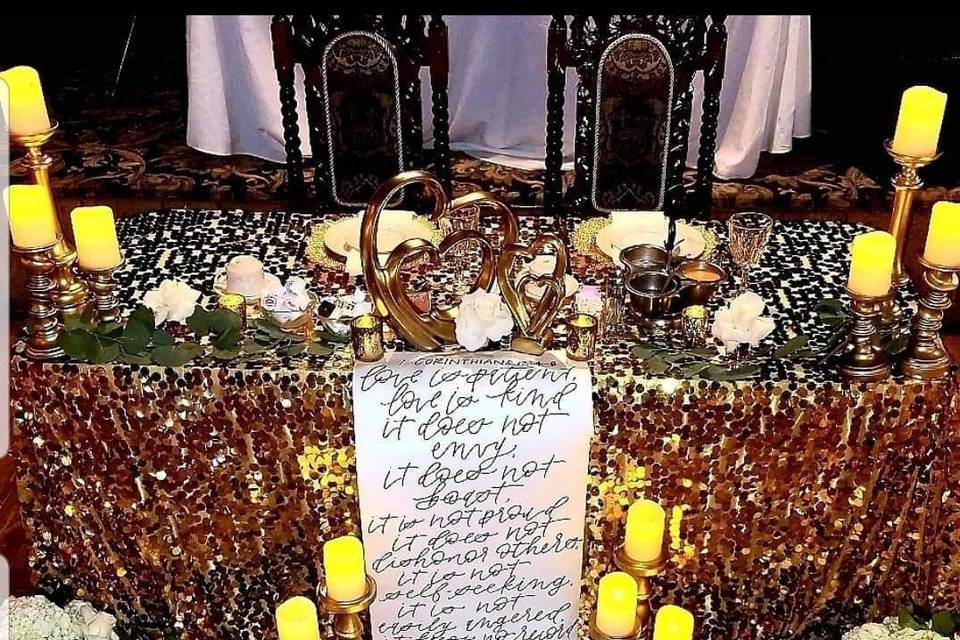 1 CORINTHIANS
love is patient
love is kind
it does not
envy.
it does not
boast.
it is not proud
it does not
dishonor others.
it is not
self-seeking.
it is not
easily angered.
it keeps no record